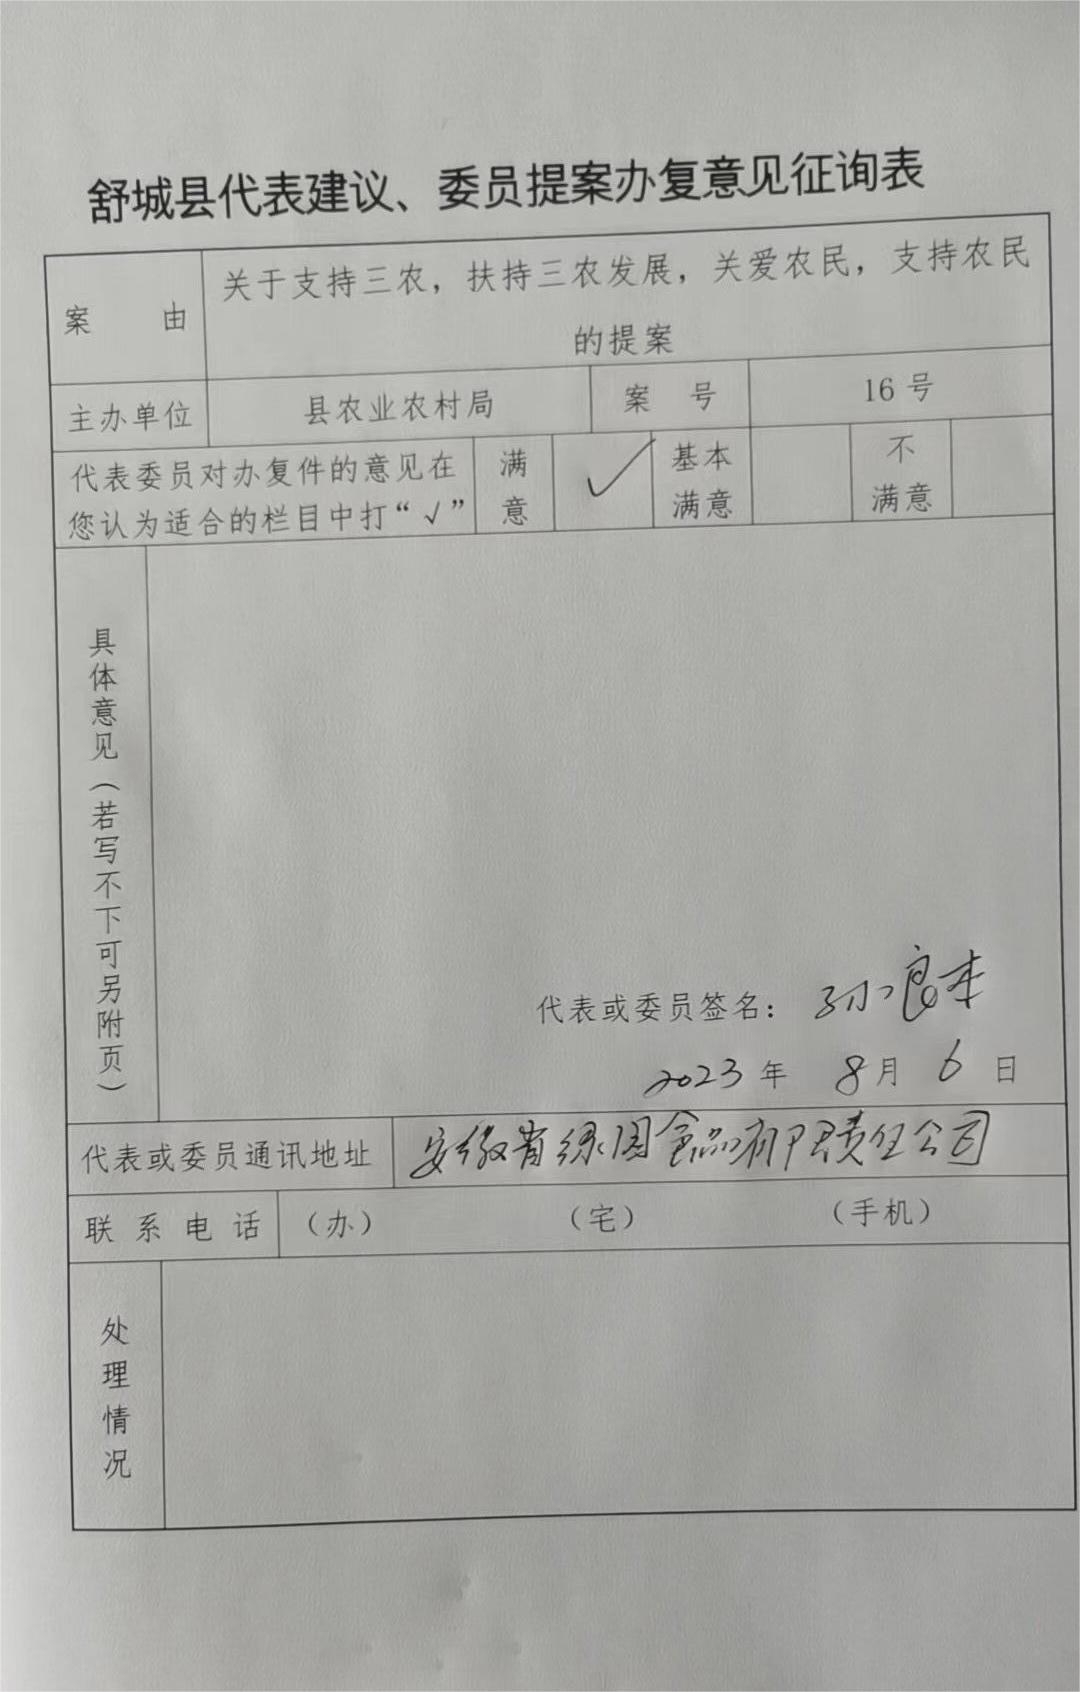 舒城县代表建议、委员提案办复意见征询表
案 由
关于支持三农，扶持三农发展，关爱农民，支持农民
的提案
主办单位
县农业农村局
案 号
16 号
代表委员对办复件的意见在
您认为适合的栏目中打“√”
满
意
✓
基本
满意
不
满意
具体意见（若写不下可另附页）
代表或委员签名：孙良本
2023 年 8 月 6 日
代表或委员通讯地址
安徽省绿园食品有限责任公司
联 系 电 话
（办） （宅） （手机）
处理情况